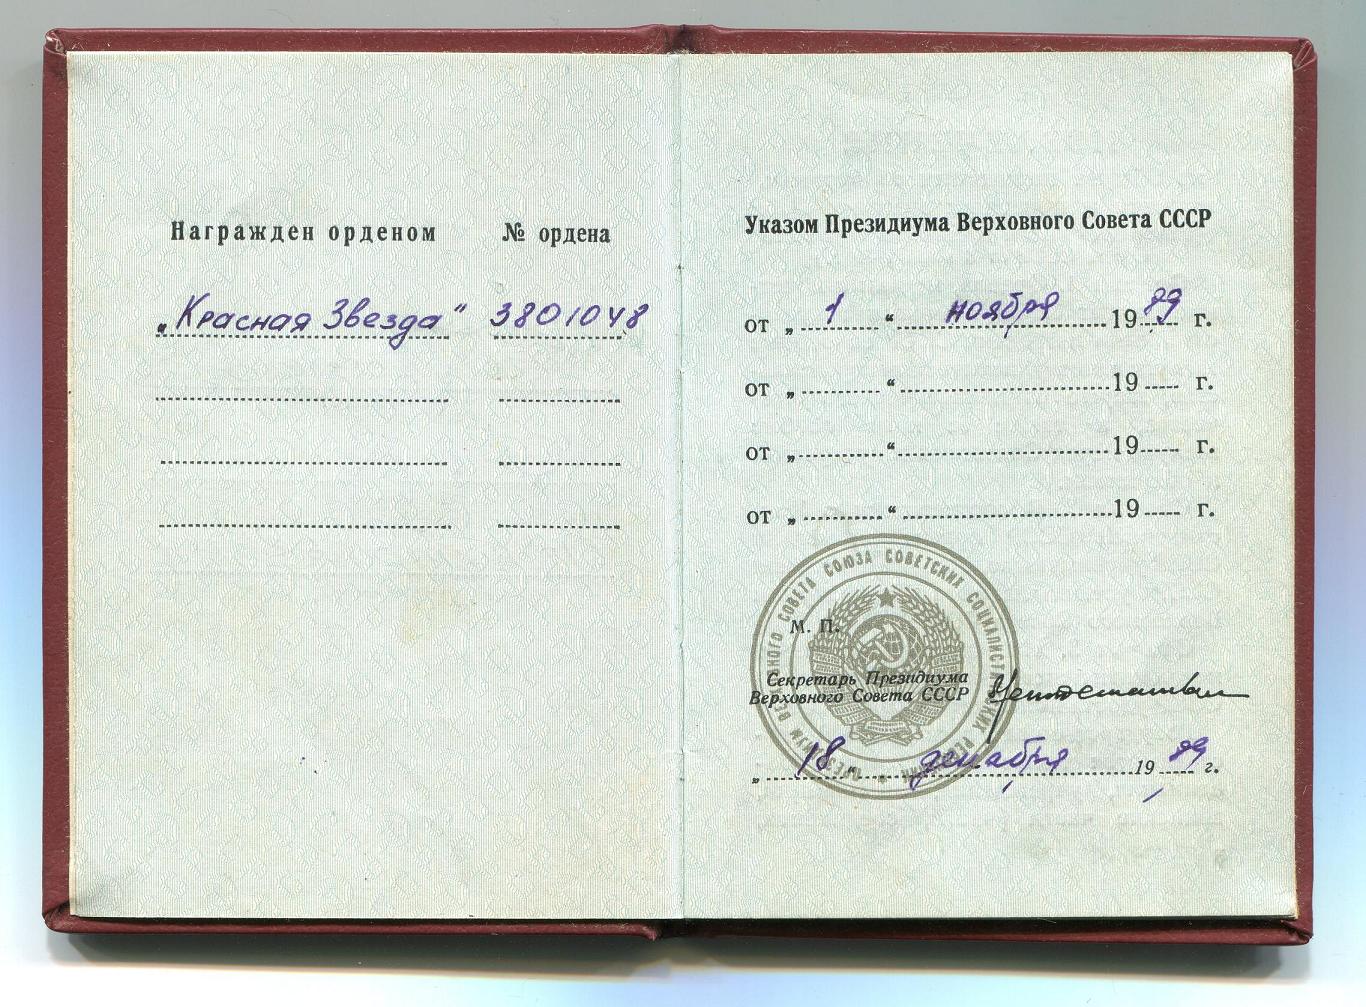 Награжден орденом № ордена
„Красная Звезда“ 3801048
Указом Президиума Верховного Совета СССР
от „ 1 “ ноября 1989 г.
от „ “ 19 г.
от „ “ 19 г.
от „ “ 19 г.
ПРЕЗИДИУМ ВЕРХОВНОГО СОВЕТА СОЮЗА СОВЕТСКИХ СОЦИАЛИСТИЧЕСКИХ РЕСПУБЛИК
М. П.
Секретарь Президиума
Верховного Совета СССР
„ 18 “ декабря 1989 г.